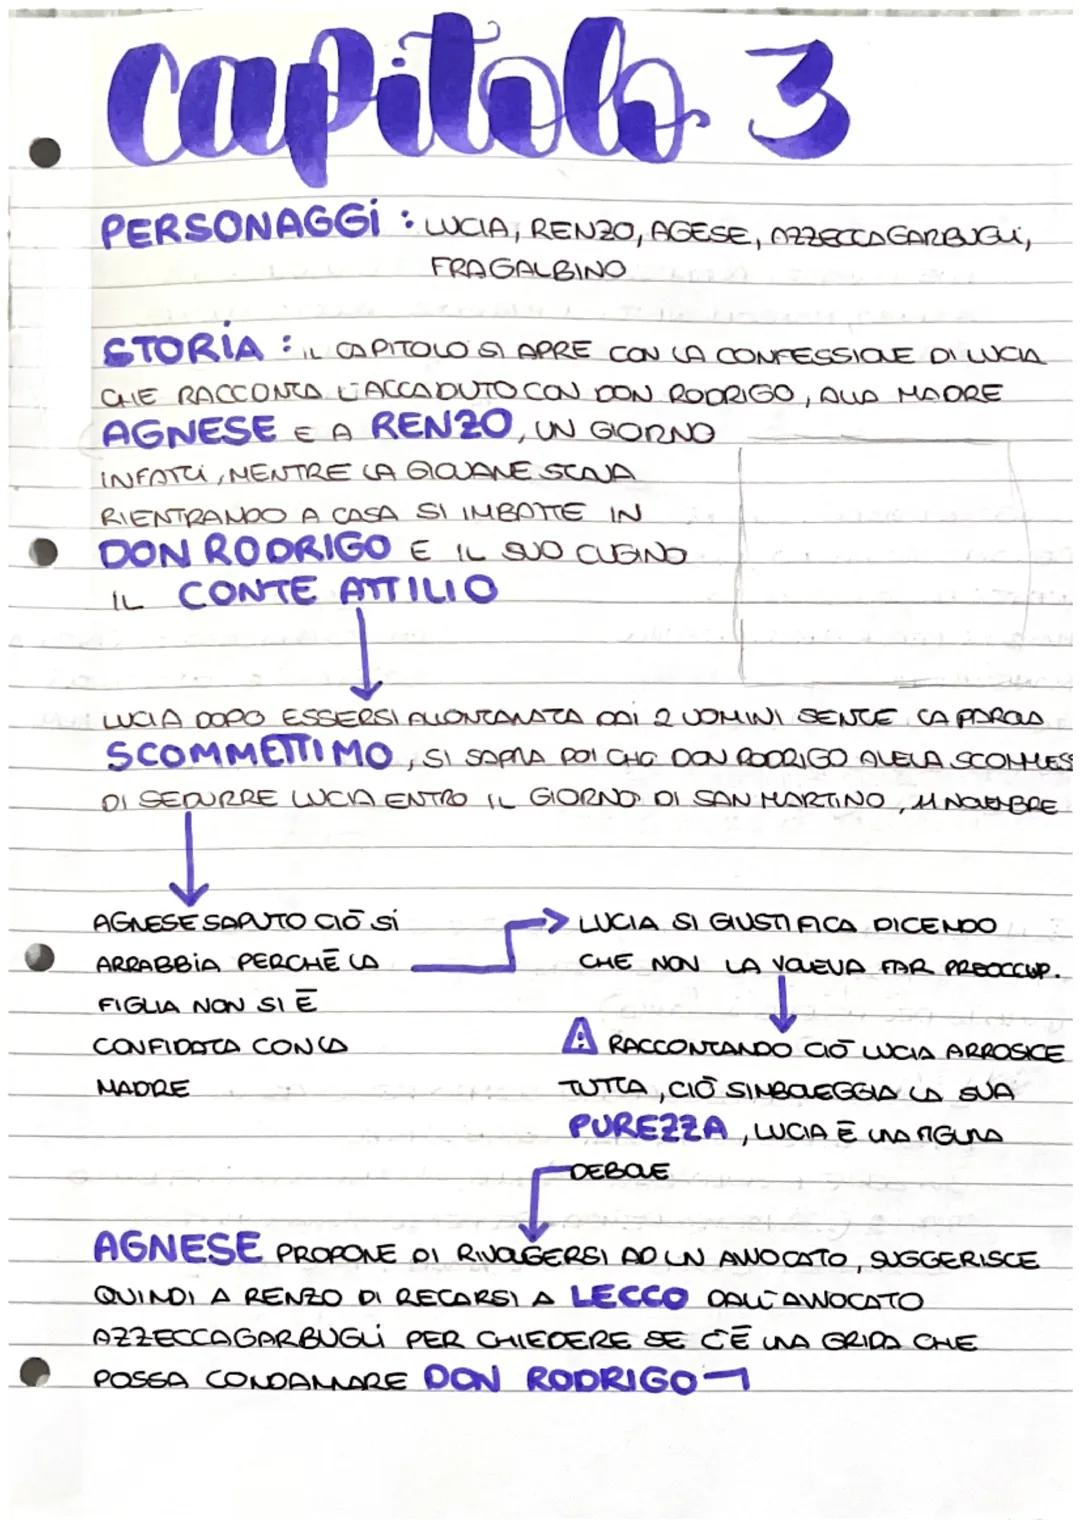 Capitolo 3
PERSONAGGI : LUCIA, RENZO, AGESE, AZZECCAGARBUGLI,
FRAGALBINO
STORIA : IL CAPITOLO SI APRE CON LA CONFESSIONE DI LUCIA
CHE RACCONTA L'ACCADUTO CON DON RODRIGO, ALLA MADRE
AGNESE E A RENZO, UN GIORNO
INFATTI, MENTRE LA GIOVANE STAVA
RIENTRANDO A CASA SI IMBATTE IN
DON RODRIGO E IL SUO CUGINO
IL CONTE ATTILIO
LUCIA DOPO ESSERSI ALLONTANATA DAI 2 UOMINI SENTE LA PAROLA
SCOMMETTIMO, SI SAPRA POI CHE DON RODRIGO AVEVA SCOMMES
DI SEDURRE LUCIA ENTRO IL GIORNO DI SAN MARTINO, 11 NOVEMBRE
AGNESE SAPUTO CIÒ SI
ARRABBIA PERCHÈ LA
FIGLIA NON SI È
CONFIDATA CON LA
MADRE
LUCIA SI GIUSTIFICA DICENDO
CHE NON LA VOLEVA FAR PREOCCUP.
RACCONTANDO CIÒ LUCIA ARROSICE
TUTTA, CIÒ SIMBOLEGGIA LA SUA
PUREZZA, LUCIA È UNA FIGURA
DEBOLE
AGNESE PROPONE DI RIVOLGERSI AD UN AVVOCATO, SUGGERISCE
QUINDI A RENZO DI RECARSI A LECCO DALL'AVVOCATO
AZZECCAGARBUGLI PER CHIEDERE SE C'È UNA GRIDA CHE
POSSA CONDANNARE DON RODRIGO